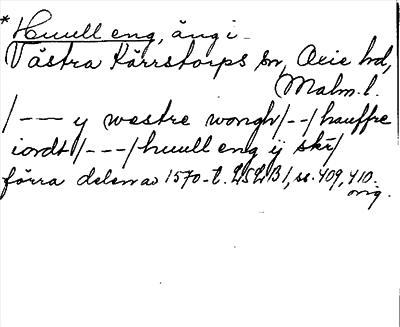 *Huull eng, äng i
Västra Kärrstorps sn, Oxie hd,
Malm. l.
/--- y westre wongh/--/hauffre
iordt/---/huull eng ij skr/
förra delen av 1570-t. LSLB1, ss. 409, 410.
orig.